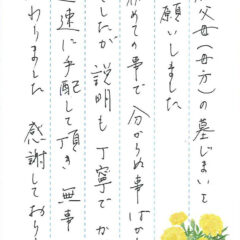 父母(母方)の墓じまいを
願いしました
めての事で 分からぬ事 ばか
したが 説明も 丁寧で か
速に手配して頂き 無事
わりました 感謝しており